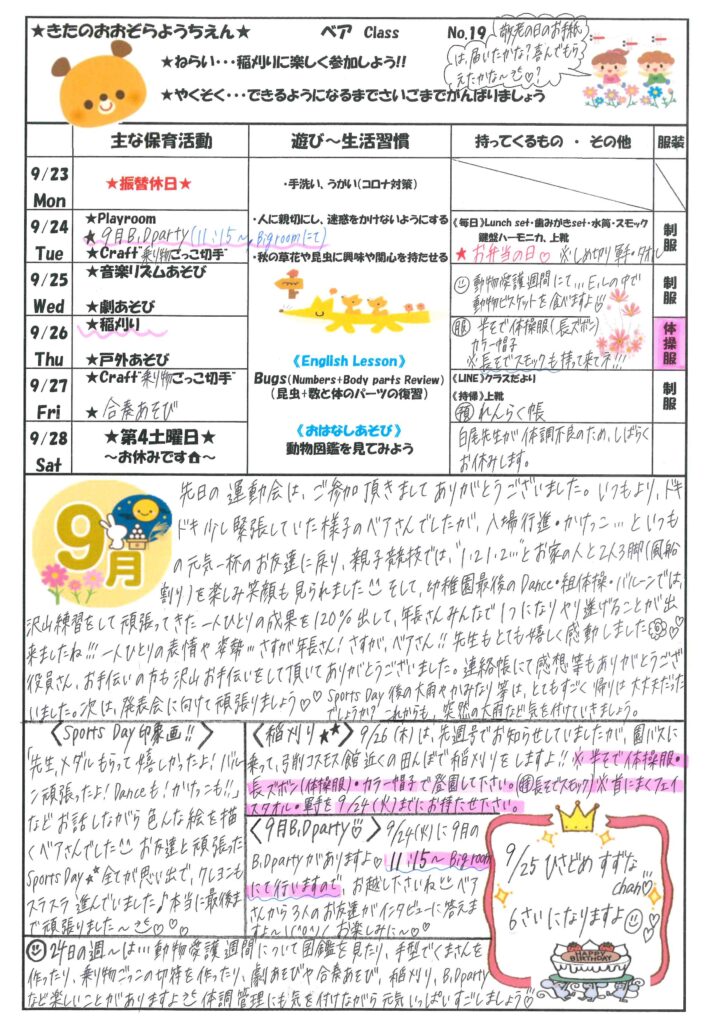 ★きたのおおぞらようちえん★ ベア Class No.19
敬老の日のお手紙
は、届いたかな？喜んでもら
えたかな～♡？
★ねらい・・・稲刈りに楽しく参加しよう!!
★やくそく・・・できるようになるまでさいごまでがんばりましょう
主な保育活動 遊び～生活習慣 持ってくるもの ・ その他 服装
9/23
Mon
★振替休日★
・手洗い、うがい(コロナ対策)
9/24
Tue
★Playroom
★9月B.Dparty(11:15～、Big roomにて)
★Craft"乗り物ごっこ切手"
・人に親切にし、迷惑をかけないようにする
・秋の草花や昆虫に興味や関心を持たせる
《毎日》Lunch set・歯みがきset・水筒・スモック
鍵盤ハーモニカ、上靴
★お弁当の日♡ ※しめきり軍手・タオル
制服
9/25
Wed
★音楽リズムあそび
★劇あそび
動物愛護週間にて…E.Lの中で
動物ビスケットを食べますよ♡
制服
9/26
Thu
★稲刈り
★戸外あそび
服 半そで体操服(長ズボン)
カラー帽子
※長そでスモックも持って来てネ!!!
体操服
9/27
Fri
★Craft"乗り物ごっこ切手"
★合奏あそび
《English Lesson》
Bugs(Numbers+Body parts Review)
(昆虫+数と体のパーツの復習)
《LINE》クラスだより
《持帰》上靴
れんらく帳
制服
9/28
Sat
★第4土曜日★
～お休みです～
《おはなしあそび》
動物図鑑を見てみよう
白尾先生が体調不良のため、しばらく
お休みします。
9月
先日の運動会は、ご参加頂きましてありがとうございました。いつもより、ドキ
ドキ少し緊張していた様子のベアさんでしたが、入場行進・かけっこ…といつも
の元気一杯のお友達に戻り、親子競技では、"1・2・1・2…"とお家の人と2人3脚(風船
割り)を楽しみ笑顔も見られました そして、幼稚園最後のDance・組体操・バルーンでは、
沢山練習をして頑張ってきた一人ひとりの成果を120%出して、年長さんみんなで1つになりやり遂げることが出
来ましたね!!! 一人ひとりの表情や姿勢…さすが年長さん！さすが、ベアさん!! 先生もとても嬉しく感動しました♡
役員さん、お手伝いの方も沢山お手伝いをして頂いてありがとうございました。連絡帳にて感想等もありがとうござ
いました。次は、発表会に向けて頑張りましょう♡♡ Sports Day後の大雨やかみなり等は、とてもすごく帰りは大丈夫だった
でしょうか？これからも、突然の大雨など気を付けていきましょう。
〈Sports Day印象画!!〉
「先生、メダルもらって嬉しかったよ！バルー
ン頑張ったよ！Danceも！かけっこも!!」
などお話しながら色んな絵を描
くベアさんでした お友達と頑張った
Sports Day★★全てが思い出で、クレヨンも
スラスラ進んでいました♪本当に最後ま
で頑張りました～♡♡♡
〈稲刈り★★〉 9/26(木)は、先週号でお知らせしていましたが、園バスに
乗って、弓削コスモス館近くの田んぼで稲刈りをしますよ!! ※半そで体操服・
長ズボン(体操服)・カラー帽子で登園して下さい。(長そでスモック)※首にまくフェイ
スタオル・軍手を9/24(火)までにお持たせ下さい。
〈9月B.Dparty♡〉 9/24(火)に9月の
B.Dpartyがありますよ♡ 11:15～Big room
にて行いますので お越し下さいね ベア
さんから3人のお友達がインタビューに答えま
す～！(^o^)/ お楽しみに～♡
9/25 ひさどめ すずな
chan♡
6さいになりますよ♡
HAPPY
BIRTHDAY
24日の週～は…動物愛護週間について図鑑を見たり、手型でくまさんを
作ったり、乗り物ごっこの切符を作ったり、劇あそびや合奏あそび、稲刈り、B.Dparty
など楽しいことがありますよ 体調管理にも気を付けながら元気いっぱいすごしましょう♡